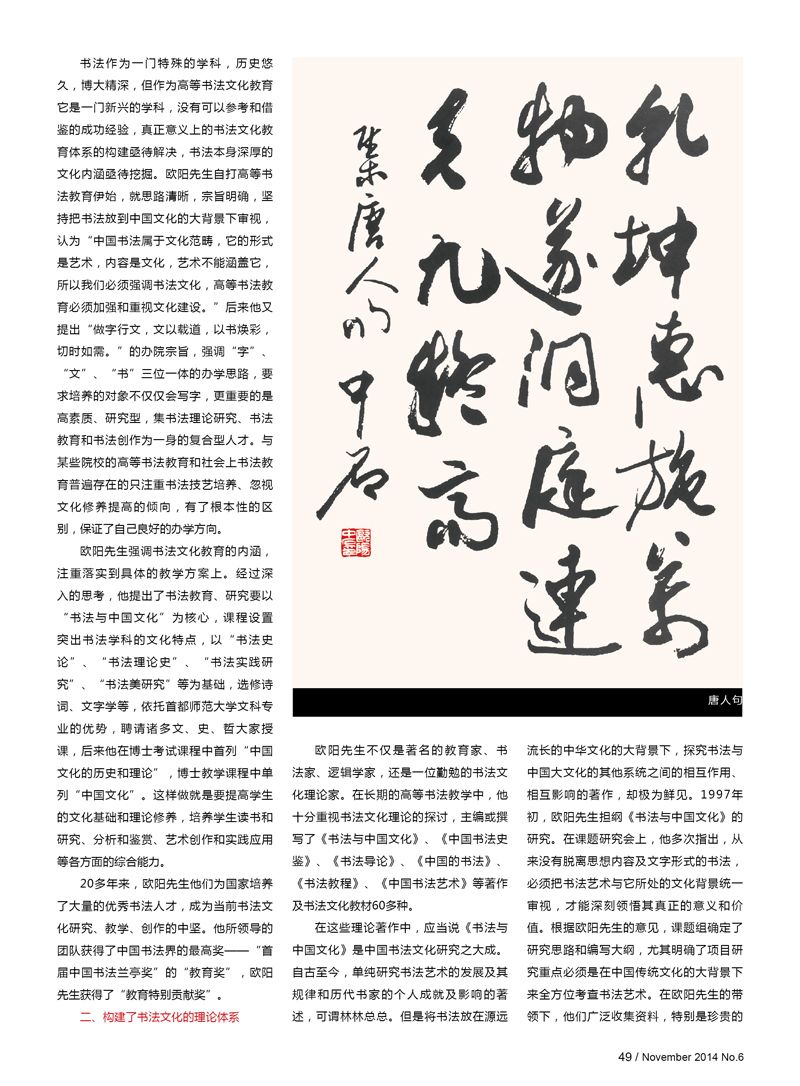 书法作为一门特殊的学科，历史悠
久，博大精深，但作为高等书法文化教育
它是一门新兴的学科，没有可以参考和借
鉴的成功经验，真正意义上的书法文化教
育体系的构建亟待解决，书法本身深厚的
文化内涵亟待挖掘。欧阳先生自打高等书
法教育伊始，就思路清晰，宗旨明确，坚
持把书法放到中国文化的大背景下审视，
认为“中国书法属于文化范畴，它的形式
是艺术，内容是文化，艺术不能涵盖它，
所以我们必须强调书法文化，高等书法教
育必须加强和重视文化建设。”后来他又
提出“做字行文，文以载道，以书焕彩，
切时如需。”的办院宗旨，强调“字”、
“文”、“书”三位一体的办学思路，要
求培养的对象不仅仅会写字，更重要的是
高素质、研究型，集书法理论研究、书法
教育和书法创作为一身的复合型人才。与
某些院校的高等书法教育和社会上书法教
育普遍存在的只注重书法技艺培养、忽视
文化修养提高的倾向，有了根本性的区
别，保证了自己良好的办学方向。
欧阳先生强调书法文化教育的内涵，
注重落实到具体的教学方案上。经过深
入的思考，他提出了书法教育、研究要以
“书法与中国文化”为核心，课程设置
突出书法学科的文化特点，以“书法史
论”、“书法理论史”、“书法实践研
究”、“书法美研究”等为基础，选修诗
词、文字学等，依托首都师范大学文科专
业的优势，聘请诸多文、史、哲大家授
课，后来他在博士考试课程中首列“中国
文化的历史和理论”，博士教学课程中单
列“中国文化”。这样做就是要提高学生
的文化基础和理论修养，培养学生读书和
研究、分析和鉴赏、艺术创作和实践应用
等各方面的综合能力。
20多年来，欧阳先生他们为国家培养
了大量的优秀书法人才，成为当前书法文
化研究、教学、创作的中坚。他所领导的
团队获得了中国书法界的最高奖——“首
届中国书法兰亭奖”的“教育奖”，欧阳
先生获得了“教育特别贡献奖”。
二、构建了书法文化的理论体系
乾坤惠施萬
物遂洞庭連
天九疑高
集唐人句 中石
唐人句
欧阳先生不仅是著名的教育家、书
法家、逻辑学家，还是一位勤勉的书法文
化理论家。在长期的高等书法教学中，他
十分重视书法文化理论的探讨，主编或撰
写了《书法与中国文化》、《中国书法史
鉴》、《书法导论》、《中国的书法》、
《书法教程》、《中国书法艺术》等著作
及书法文化教材60多种。
在这些理论著作中，应当说《书法与
中国文化》是中国书法文化研究之大成。
自古至今，单纯研究书法艺术的发展及其
规律和历代书家的个人成就及影响的著
述，可谓林林总总。但是将书法放在源远
流长的中华文化的大背景下，探究书法与
中国大文化的其他系统之间的相互作用、
相互影响的著作，却极为鲜见。1997年
初，欧阳先生担纲《书法与中国文化》的
研究。在课题研究会上，他多次指出，从
来没有脱离思想内容及文字形式的书法，
必须把书法艺术与它所处的文化背景统一
审视，才能深刻领悟其真正的意义和价
值。根据欧阳先生的意见，课题组确定了
研究思路和编写大纲，尤其明确了项目研
究重点必须是在中国传统文化的大背景下
来全方位考查书法艺术。在欧阳先生的带
领下，他们广泛收集资料，特别是珍贵的
49 / November 2014 No.6